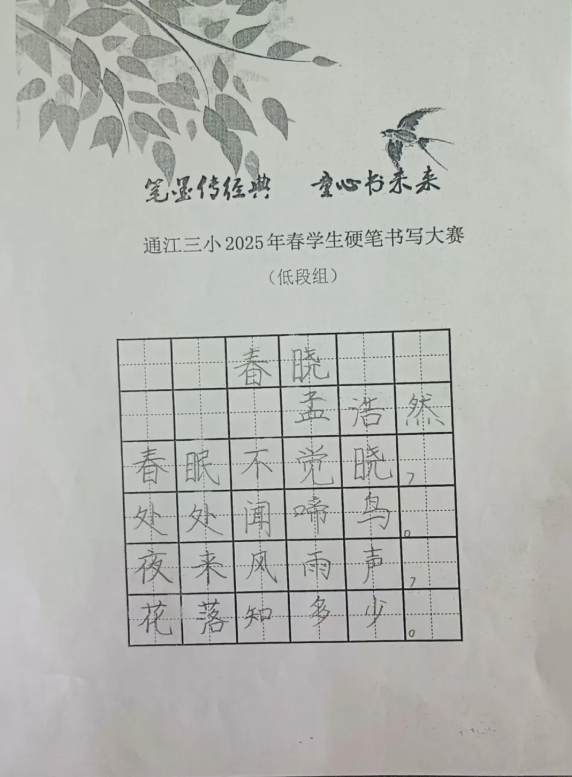 笔墨传经典 童心书未来
通江三小2025年春学生硬笔书写大赛
（低段组）
春晓
孟浩然
春眠不觉晓，
处处闻啼鸟。
夜来风雨声，
花落知多少。